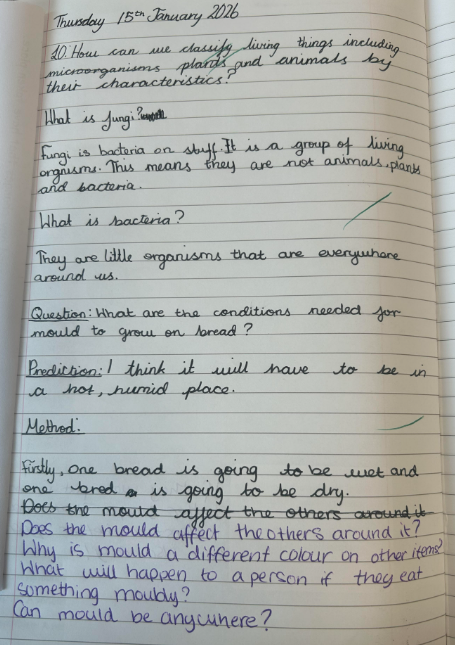 Thursday 15th January 2026
10. How can we classify living things including
microorganisms plants and animals by
their characteristics?
What is fungi?
Fungi is bacteria on stuff. It is a group of living
orgnisms. This means they are not animals, plants
and bacteria.
What is bacteria?
They are little organisms that are everywhere
around us.
Question: What are the conditions needed for
mould to grow on bread?
Prediction: I think it will have to be in
a hot, humid place.
Method:
Firstly, one bread is going to be wet and
one bred is going to be dry.
Does the mould affect the others around it
Does the mould affect the others around it?
Why is mould a different colour on other items?
What will happen to a person if they eat
something mouldy?
Can mould be anywhere?